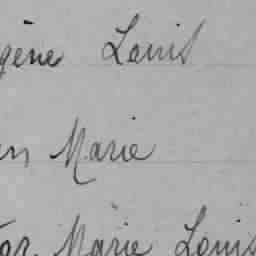 gène Louis
Marie
Marie Louis